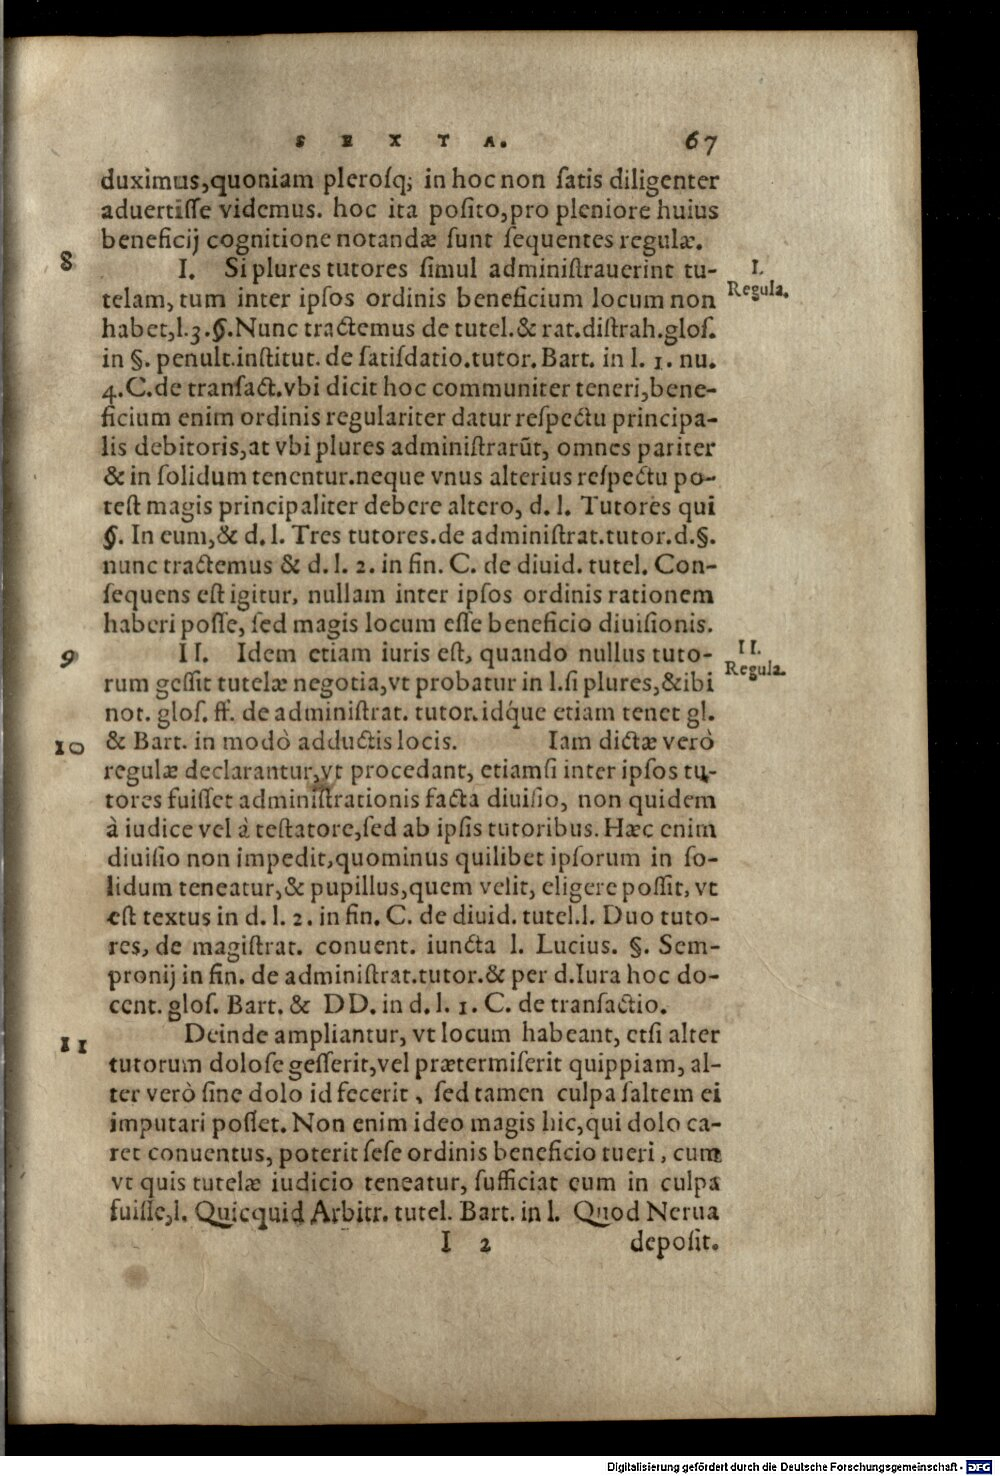 SEXTA. 67
duximus,quoniam pleroſq; in hoc non ſatis diligenter
aduertiſſe videmus. hoc ita poſito,pro pleniore huius
beneficij cognitione notandæ ſunt ſequentes regulæ.
8 I. Si plures tutores ſimul adminiſtrauerint tu- I.
telam, tum inter ipſos ordinis beneficium locum non Regula.
habet,l.3.§.Nunc tractemus de tutel.& rat.diſtrah.gloſ.
in §. penult.inſtitut. de ſatiſdatio.tutor. Bart. in l. 1. nu.
4.C.de tranſact.vbi dicit hoc communiter teneri,bene-
ficium enim ordinis regulariter datur reſpectu principa-
lis debitoris,at vbi plures adminiſtrarūt, omnes pariter
& in ſolidum tenentur.neque vnus alterius reſpectu po-
teſt magis principaliter debere altero, d. l. Tutores qui
§. In eum,& d. l. Tres tutores.de adminiſtrat.tutor.d.§.
nunc tractemus & d. l. 2. in fin. C. de diuid. tutel. Con-
ſequens eſt igitur, nullam inter ipſos ordinis rationem
haberi poſſe, ſed magis locum eſſe beneficio diuiſionis.
9 II. Idem etiam iuris eſt, quando nullus tuto- II.
rum geſſit tutelæ negotia,vt probatur in l.ſi plures,&ibi Regula.
not. gloſ. ff. de adminiſtrat. tutor.idq́ue etiam tenet gl.
10 & Bart. in modò adductis locis. Iam dictæ verò
regulæ declarantur,vt procedant, etiamſi inter ipſos tu-
tores fuiſſet adminiſtrationis facta diuiſio, non quidem
à iudice vel à teſtatore,ſed ab ipſis tutoribus. Hæc enim
diuiſio non impedit,quominus quilibet ipſorum in ſo-
lidum teneatur,& pupillus,quem velit, eligere poſſit, vt
eſt textus in d. l. 2. in fin. C. de diuid. tutel.l. Duo tuto-
res, de magiſtrat. conuent. iuncta l. Lucius. §. Sem-
pronij in fin. de adminiſtrat.tutor.& per d.Iura hoc do-
cent. gloſ. Bart. & DD. in d. l. 1. C. de tranſactio.
11 Deinde ampliantur, vt locum habeant, etſi alter
tutorum doloſe geſſerit,vel prætermiſerit quippiam, al-
ter verò ſine dolo id fecerit, ſed tamen culpa ſaltem ei
imputari poſſet. Non enim ideo magis hic,qui dolo ca-
ret conuentus, poterit ſeſe ordinis beneficio tueri, cum
vt quis tutelæ iudicio teneatur, ſufficiat eum in culpa
fuiſſe,l. Quicquid Arbitr. tutel. Bart. in l. Quod Nerua
I 2 depoſit.
Digitalisierung gefördert durch die Deutsche Forschungsgemeinschaft - DFG